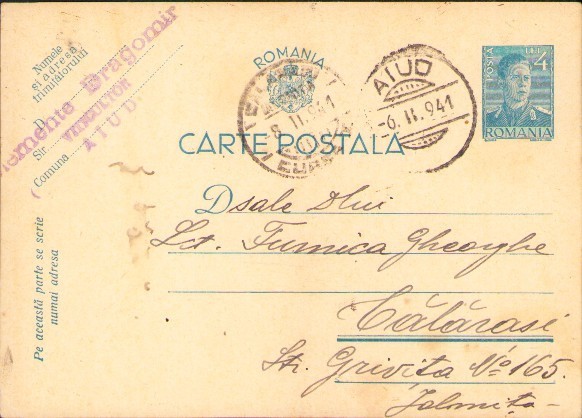 Numele
și adresa
trimițătorului
D.
Clemente Dragomir
Str.
Comuna
AIUD
Pe această parte se scrie
numai adresa
ROMANIA
CARTE POSTALA
8. II. 941
AIUD
-6. II. 941
POSTA LEI 4
ROMANIA
Dsale Dlui
Lct. Furnica Gheorghe
Călărași
Str. Grivita No 165.
Ialomita